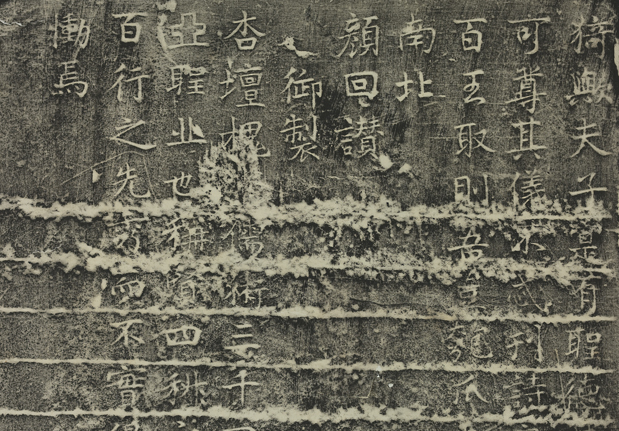 猗歟夫子是有聖德
可尊其儀不忒刊詩
百王取則吾豈匏瓜
南北
顏回讃
御製
杏壇槐 儒術三千
亞聖丘也稱賢四科
百行之先 而不實
慟焉